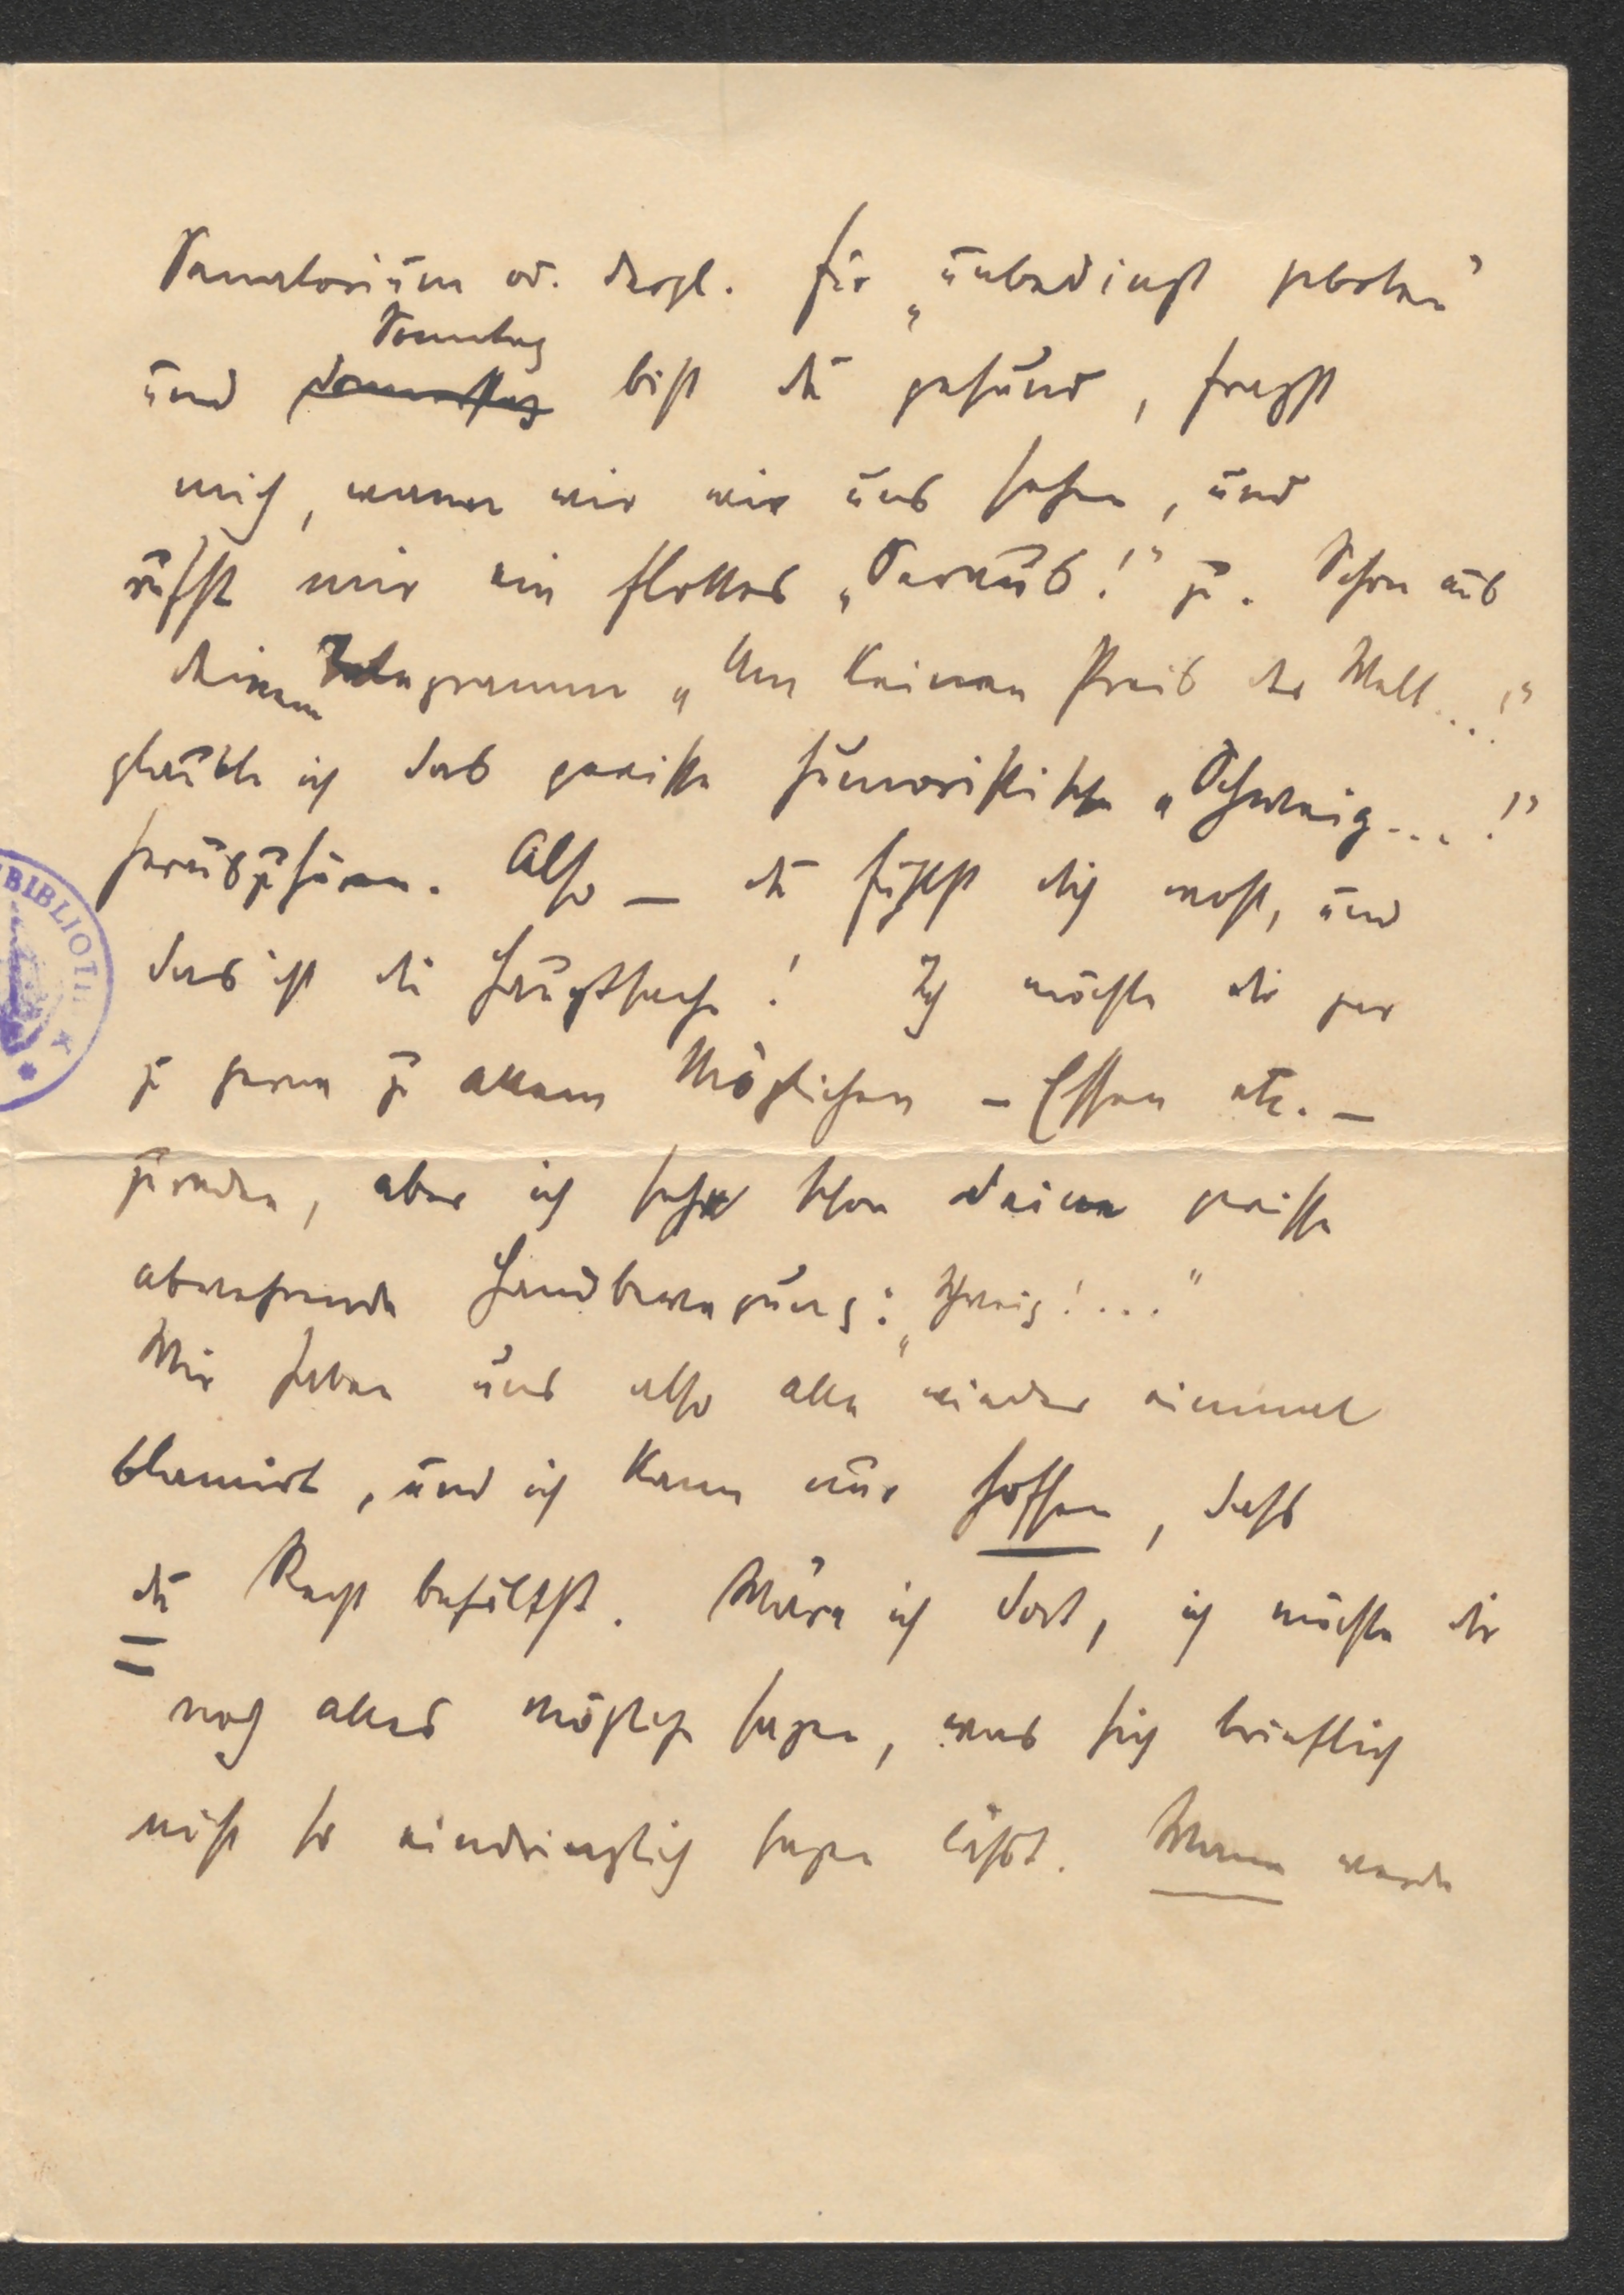 Sanatorium od. dergl. für „unbedingt geboten"
Sonntag
und Donnerstag bist du gesund, fragst
mich, wann wir uns sehen, und
rufst mir ein flottes „Servus!" zu. Schon aus
deinem Telegramm „Um keinen Preis der Welt...!"
glaubte ich das gewisse humoristische „Schweig...!"
herauszuhören. Also – du fühlst dich wohl, und
das ist die Hauptsache! Ich möchte dir gar
zu gerne zu allem Möglichen – Essen etc. –
zureden, aber ich sehe schon deine gewisse
abwehrende Handbewegung: „Schweig!..."
Wir haben uns also alle wieder einmal
blamirt, und ich kann nur hoffen, dass
du Recht behältst. Wäre ich dort, ich möchte dir
noch alles mögliche sagen, was sich brieflich
nicht so eindringlich sagen lässt. Wann werde
BIBLIOTH